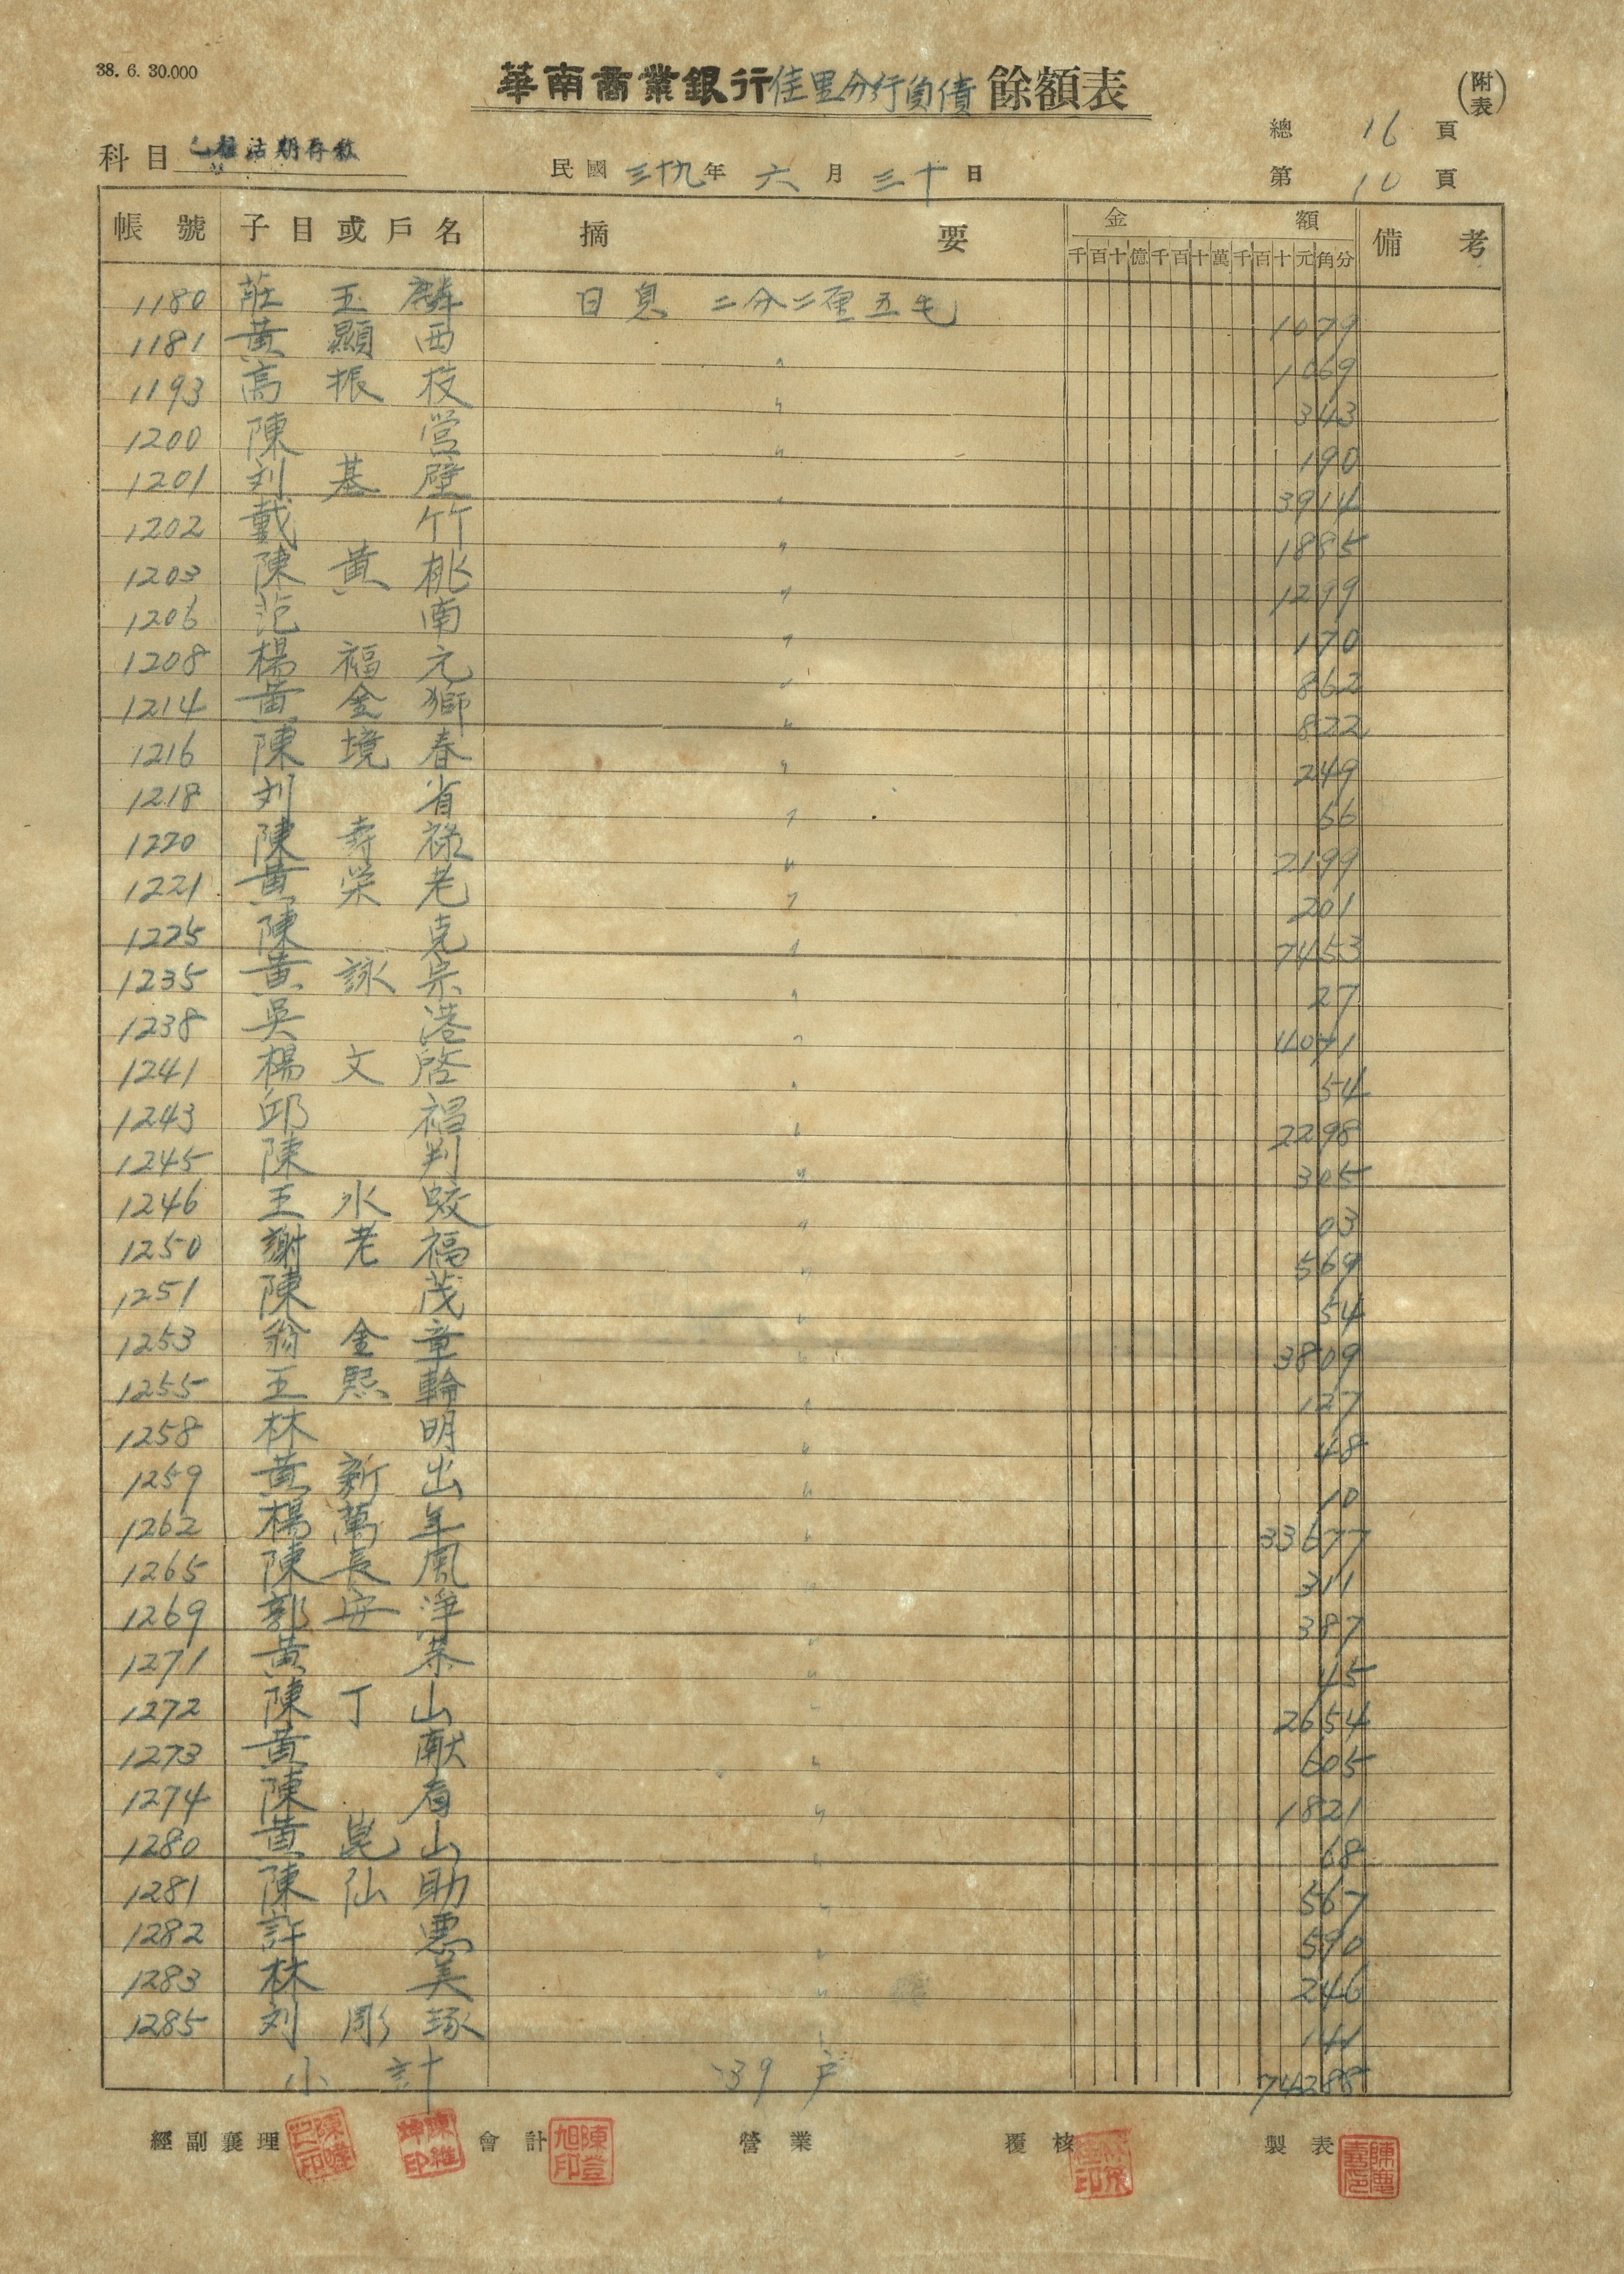 38. 6. 30.000
華南商業銀行佳里分行負債餘額表
(附表)
總 16 頁
科目 乙種活期存款
民國 三十九年 六月 三十日
第 10 頁
帳號 子目或戶名 摘要 金額 備考
千百十億千百十萬千百十元角分
1180 莊玉麟 日息 二分二厘五毛 1079
1181 黃顯西 〃 1069
1193 高振枝 〃 343
1200 陳営 〃 190
1201 刘基壁 〃 3914
1202 戴竹 〃 1885
1203 陳黃桃 〃 1299
1206 范南 〃 170
1208 楊福元 〃 862
1214 黃金獅 〃 822
1216 陳境春 〃 249
1218 刘省 〃 66
1220 陳寿祿 〃 2199
1221 黃栄老 〃 201
1225 陳克 〃 7453
1235 黃詠宗 〃 27
1238 吳港 〃 4071
1241 楊文啓 〃 54
1243 邱福 〃 2298
1245 陳判 〃 305
1246 王水蛟 〃 03
1250 謝老福 〃 569
1251 陳茂 〃 54
1253 翁金章 〃 3809
1255 王熙輪 〃 127
1258 林明 〃 48
1259 黃新出 〃 10
1262 楊萬年 〃 33677
1265 陳長鳳 〃 311
1269 郭安淨 〃 387
1271 黃 〃 45
1272 陳丁山 〃 2654
1273 黃献 〃 605
1274 陳看 〃 1821
1280 黃崑山 〃 68
1281 陳仙助 〃 567
1282 許悪 〃 590
1283 林美 〃 246
1285 刘彫琢 〃 141
小計 39戶 74288
經副襄理 會計 營業 覆核 製表
陳登旭印